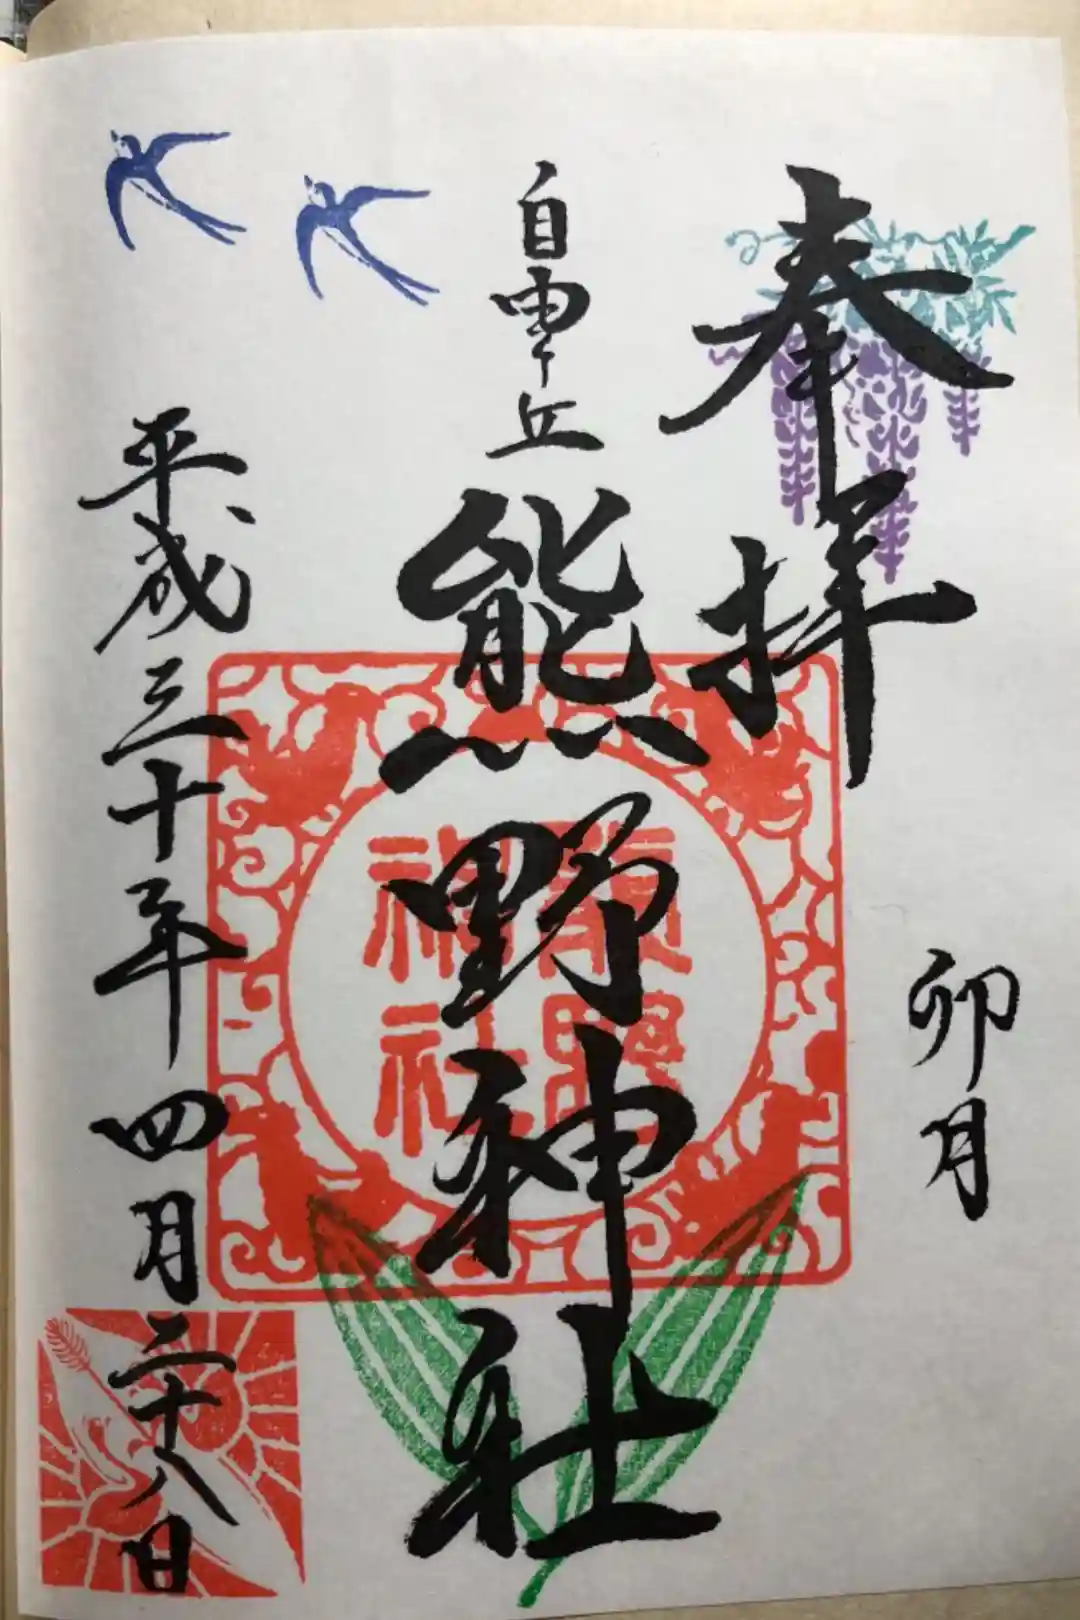 奉拝
卯月
自由ヶ丘
熊野神社
熊野神社
平成三十年四月二十八日